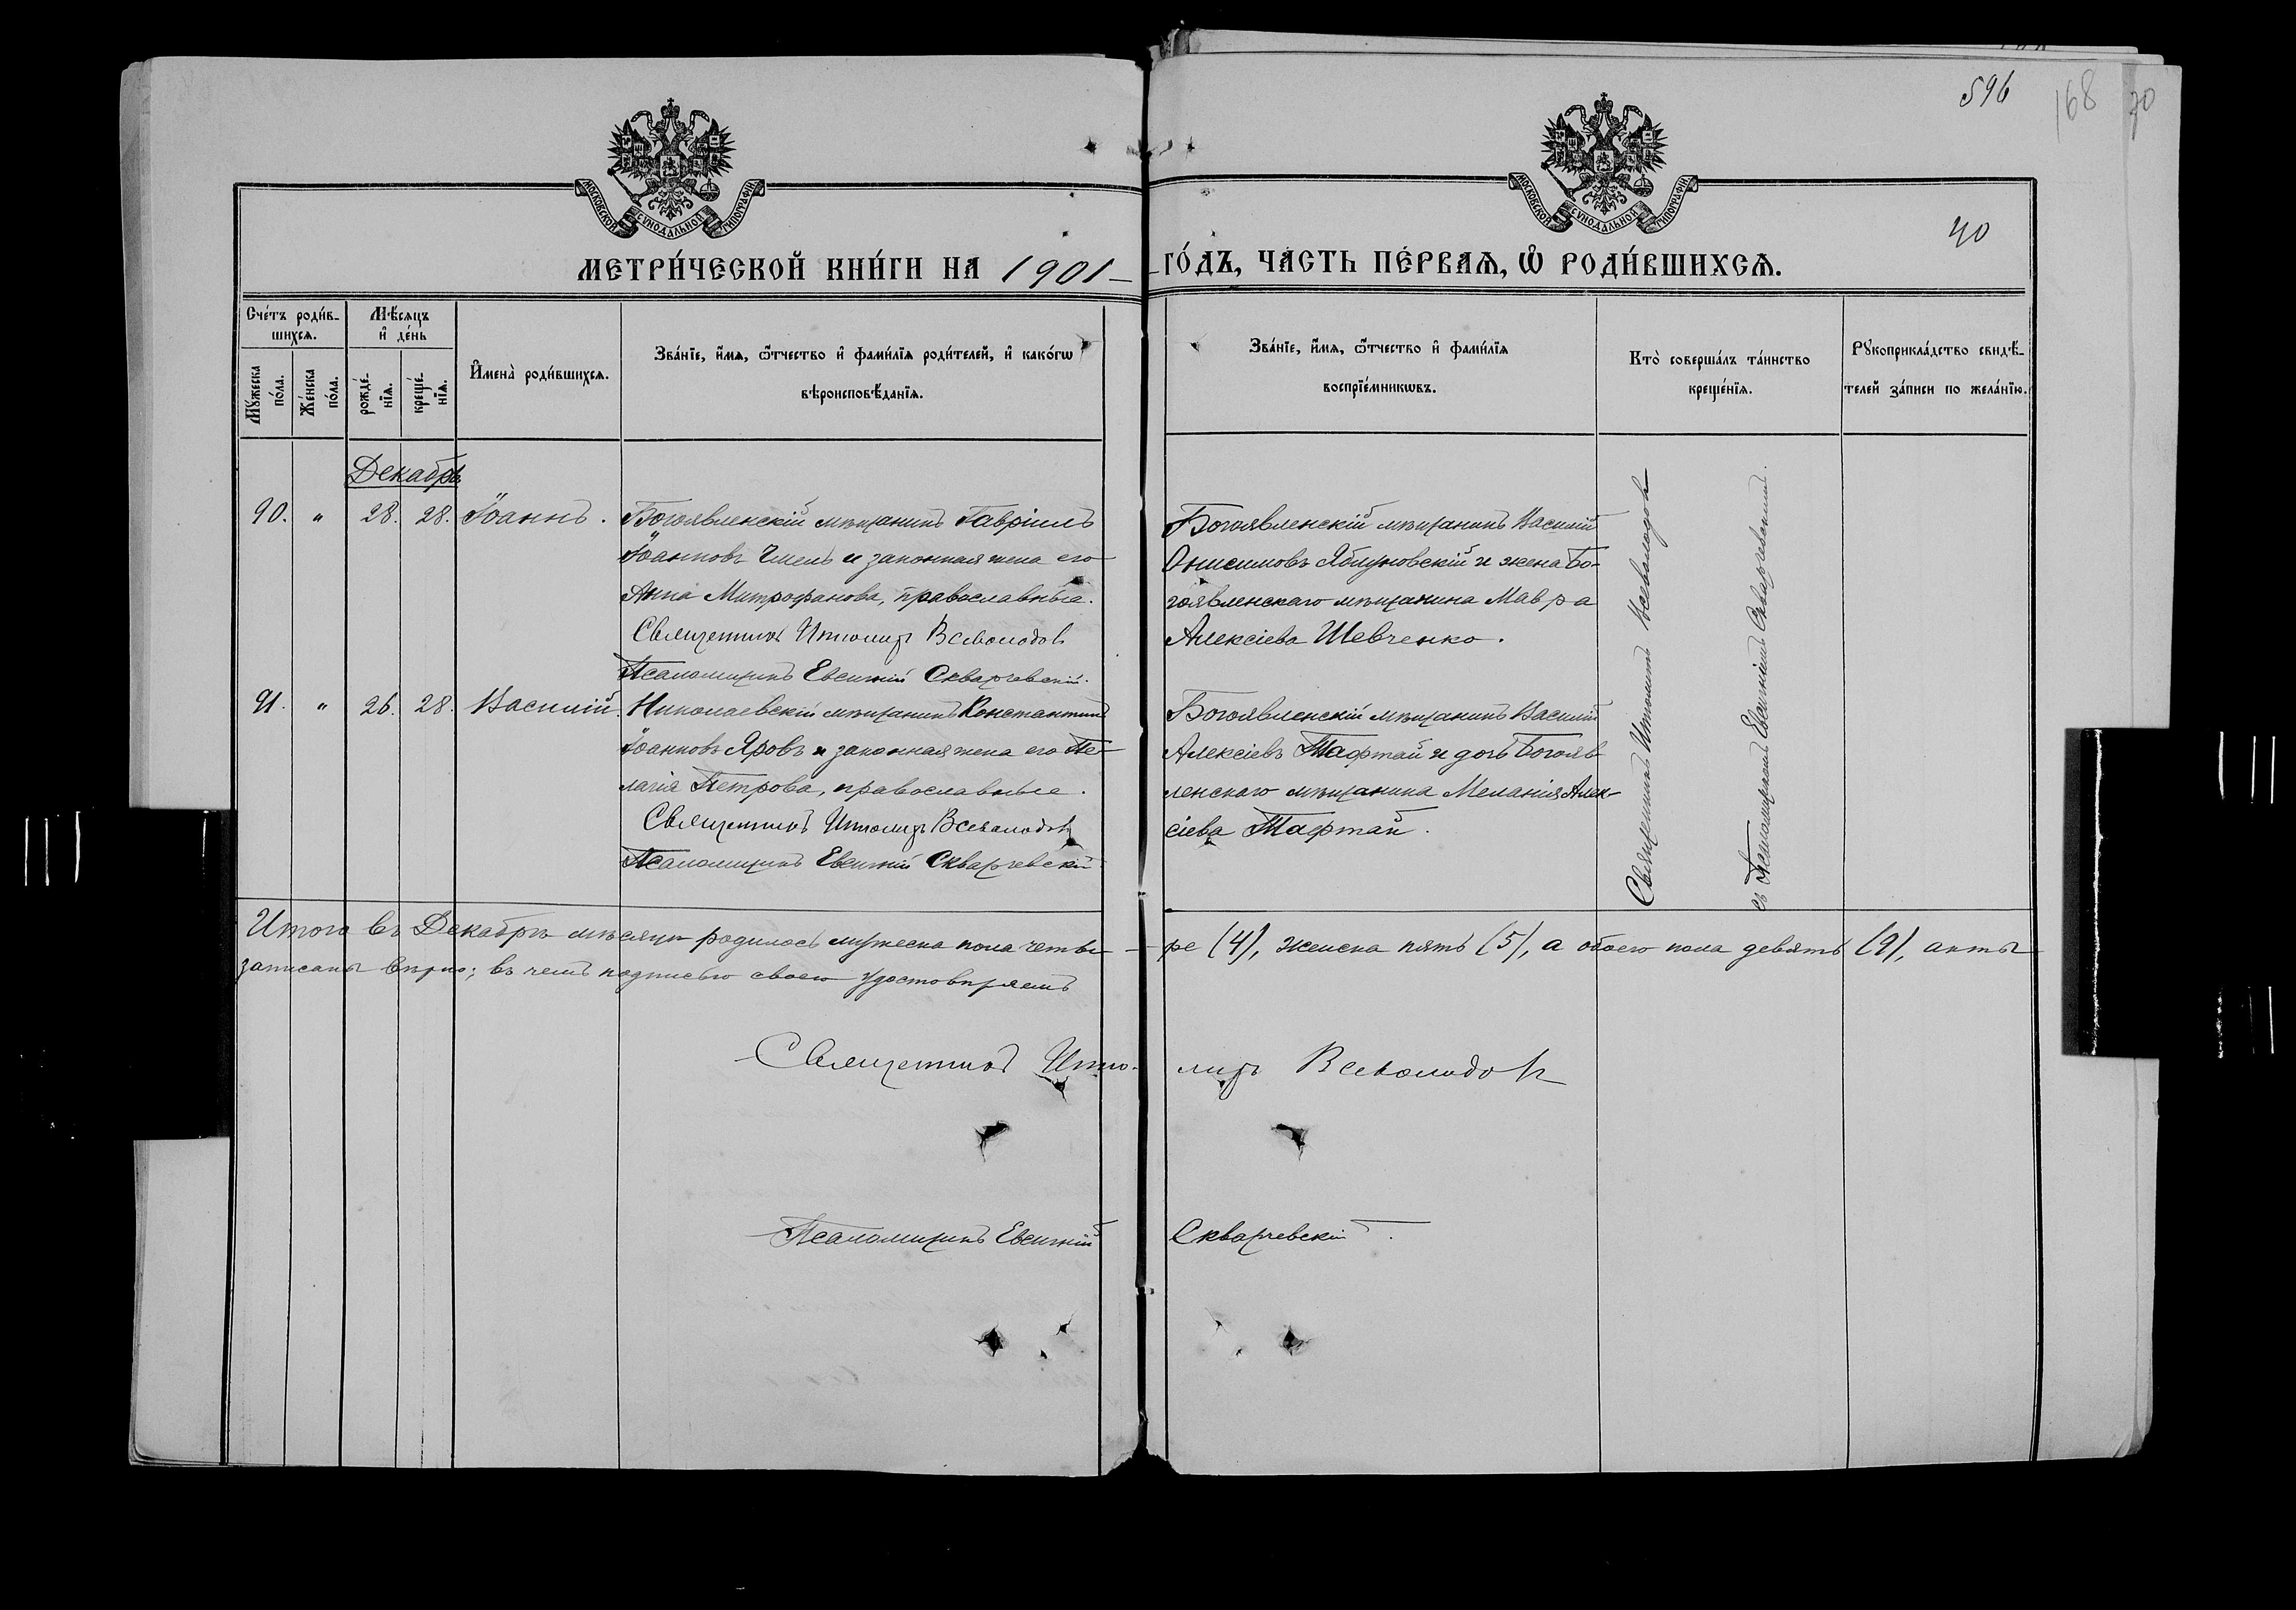 596
168
70
МОСКОВСКОЙ СѴНОДАЛЬНОЙ ТИПОГРАФІИ
МОСКОВСКОЙ СѴНОДАЛЬНОЙ ТИПОГРАФІИ
40
МЕТРИ́ЧЕСКОЙ КНИ́ГИ НА 1901 ГО́ДЪ, ЧА́СТЬ ПЕ́РВАѦ, Ѽ РОДИ́ВШИХСѦ.
Сче́тъ роди́в-
шихсѧ.
Мꙋ́жеска по́ла.
Же́нска по́ла.
Мѣ́сѧцъ
и҆ де́нь
рожде́-
нїѧ.
креще́-
нїѧ.
И҆мена̀ роди́вшихсѧ.
Зва́нїе, и҆́мѧ, ѻ҆́тчество и҆ фами́лїѧ роди́телей, и҆ како́гѡ
вѣроисповѣ́данїѧ.
Зва́нїе, и҆́мѧ, ѻ҆́тчество и҆ фами́лїѧ
воспрїе́мникѡвъ.
Кто̀ соверша́лъ та́инство
креще́нїѧ.
Рꙋкоприкла́дство свидѣ́-
телей за́писи по жела́нїю.
Декабрь
90. " 28. 28. Іоаннъ.
Богоявленскій мѣщанинъ Гавріилъ
Іоанновъ Чмель и законная жена его
Анна Митрофанова, православные.
Священникъ Всеволодовъ
Псаломщикъ Евгеній Скваржевскій.
Богоявленскій мѣщанинъ Василій
Онисимовъ Яблуновскій и жена Бо-
гоявленскаго мѣщанина Мавра
Алексіева Шевченко.
91. " 26. 28. Василій.
Николаевскій мѣщанинъ Константинъ
Іоанновъ Яровъ и законная жена его Пе-
лагія Петрова, православные.
Священникъ Всеволодовъ
Псаломщикъ Евгеній Скваржевскій
Богоявленскій мѣщанинъ Василій
Алексіевъ Тафтай и дочь Богояв
ленскаго мѣщанина Меланія Алек-
сіева Тафтай.
Священникъ Всеволодовъ
съ Псаломщикомъ Евгеніемъ Скваржевскимъ.
Итого въ Декабрѣ мѣсяцѣ родилось мужеска пола четы-ре (4), женска пять (5), а обоего пола девять (9), акты
записаны вѣрно; въ чемъ подписью своею удостовѣряемъ
Священникъ Всеволодовъ
Псаломщикъ Евгеній Скваржевскій.